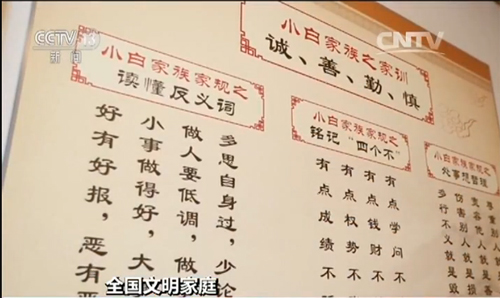 CCTV 13
新闻
CNTV
小白家族之家训
诚、善、勤、慎
小白家族家规之
读懂反义词
多思自身过，少论
做人要低调，做
小事做得好，大
好有好报，恶有恶
小白家族家规之
铭记“四个不”
有点学问不
有点钱财不
有点权势不
有点成绩不
小白家族家规之
伤害别人就是
多行不义就是毁
全国文明家庭